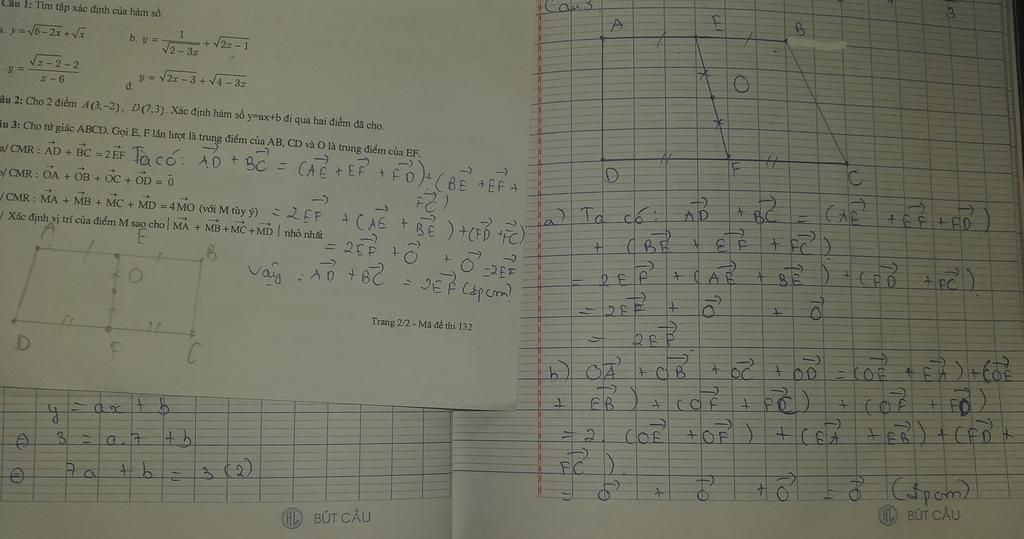 Câu 1: Tìm tập xác định của hàm số:
a. y = √(6-2x) + √x.
b. y = 1/√(2-3x) + √(2x-1)
.y = (√(x-2) - 2)/(x-6)
d. y = √(2x-3) + √(4-3x)
âu 2: Cho 2 điểm A(3;-2), D(7;3). Xác định hàm số y=ax+b đi qua hai điểm đã cho.
âu 3: Cho tứ giác ABCD. Gọi E, F lần lượt là trung điểm của AB, CD và O là trung điểm của EF.
a/ CMR : AD→ + BC→ = 2EF→
Ta có: AD→ + BC→ = (AE→ + EF→ + FD→) + (BE→ + EF→ +
FC→)
b/ CMR : OA→ + OB→ + OC→ + OD→ = 0→
/ CMR : MA→ + MB→ + MC→ + MD→ = 4MO→ (với M tùy ý)
= 2EF→ + (AE→ + BE→) + (FD→ + FC→)
/ Xác định vị trí của điểm M sao cho | MA→ + MB→ + MC→ + MD→ | nhỏ nhất
= 2EF→ + 0→ + 0→ = 2EF→
Vậy : AD→ + BC→ = 2EF→ (đpcm)
A E B
O
D F C
Trang 2/2 - Mã đề thi 132
y = ax + b
⊖ 3 = a.7 + b
⊖ 7a + b = 3 (2)
HL BÚT CẦU
Câu 3.
3
A E B
O
D F C
a) Ta có: AD→ + BC→ = (AE→ + EF→ + FD→)
+ (BE→ + EF→ + FC→)
= 2EF→ + (AE→ + BE→) + (FD→ + FC→)
= 2EF→ + 0→ + 0→
= 2EF→
b) OA→ + OB→ + OC→ + OD→ = (OE→ + EA→) + (OE→
+ EB→) + (OF→ + FC→) + (OF→ + FD→)
= 2. (OE→ + OF→) + (EA→ + EB→) + (FD→ +
FC→).
= 0→ + 0→ + 0→ = 0→ (đpcm)
HL BÚT CẦU